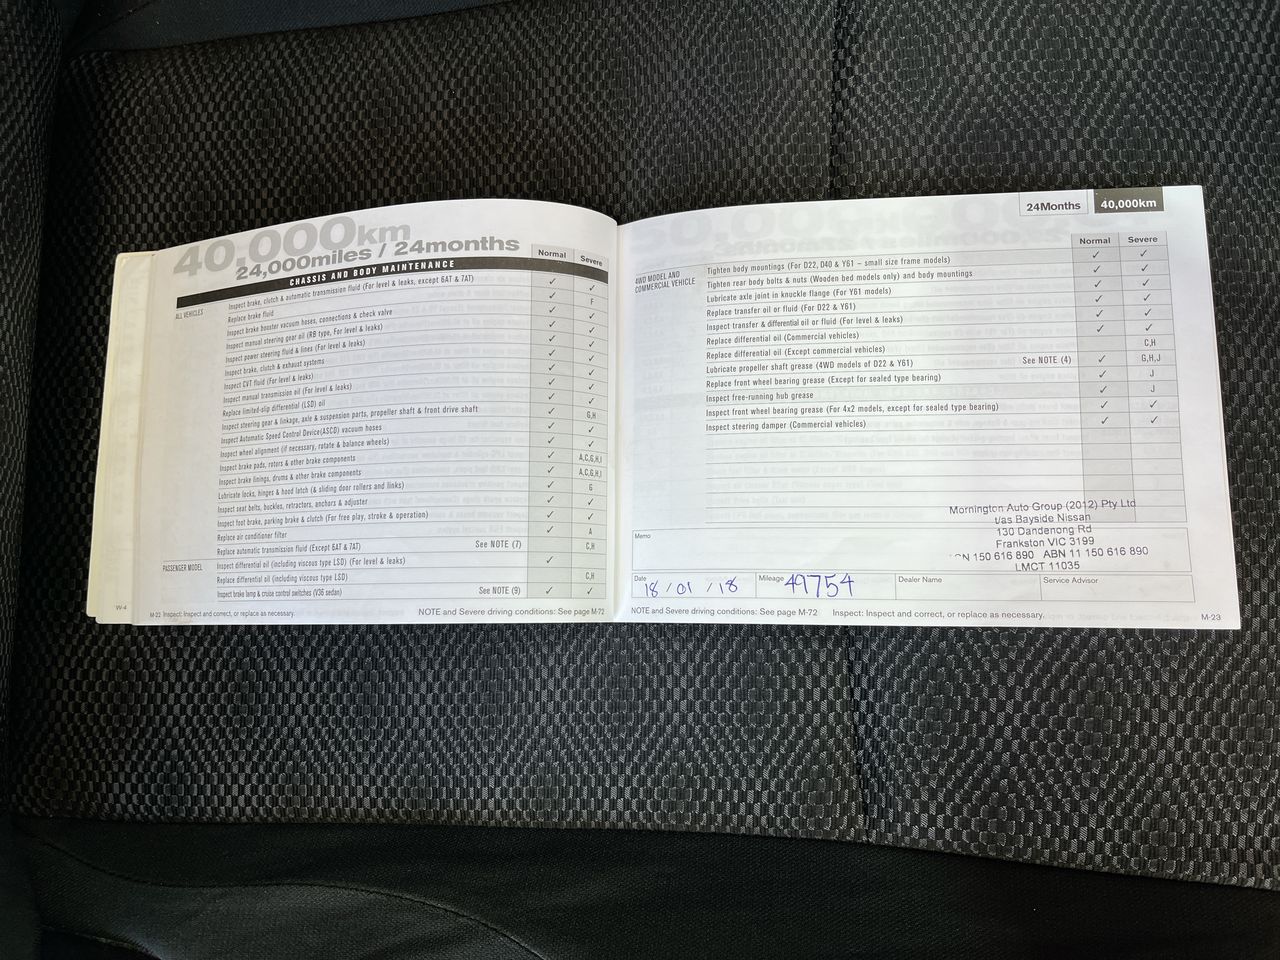 40,000km
24,000miles / 24months
Normal
Severe
CHASSIS AND BODY MAINTENANCE
ALL VEHICLES
Inspect brake, clutch & automatic transmission fluid (For level & leaks, except 6AT & 7AT) ✓ ✓
Replace brake fluid ✓ F
Inspect brake booster vacuum hoses, connections & check valve ✓ ✓
Inspect manual steering gear oil (RB type, For level & leaks) ✓ ✓
Inspect power steering fluid & lines (For level & leaks) ✓ ✓
Inspect brake, clutch & exhaust systems ✓ ✓
Inspect CVT fluid (For level & leaks) ✓ ✓
Inspect manual transmission oil (For level & leaks) ✓ ✓
Replace limited-slip differential (LSD) oil
Inspect steering gear & linkage, axle & suspension parts, propeller shaft & front drive shaft ✓ G,H
Inspect Automatic Speed Control Device(ASCD) vacuum hoses ✓ ✓
Inspect wheel alignment (if necessary, rotate & balance wheels) ✓ ✓
Inspect brake pads, rotors & other brake components ✓ A,C,G,H,I
Inspect brake linings, drums & other brake components ✓ A,C,G,H,I
Lubricate locks, hinges & hood latch (& sliding door rollers and links) ✓ G
Inspect seat belts, buckles, retractors, anchors & adjuster ✓ ✓
Inspect foot brake, parking brake & clutch (For free play, stroke & operation) ✓ ✓
Replace air conditioner filter ✓ A
Replace automatic transmission fluid (Except 6AT & 7AT) See NOTE (7) C,H
PASSENGER MODEL
Inspect differential oil (including viscous type LSD) (For level & leaks) ✓
Replace differential oil (including viscous type LSD) C,H
Inspect brake lamp & cruise control switches (V36 sedan) See NOTE (9) ✓ ✓
M-22 Inspect: Inspect and correct, or replace as necessary.
NOTE and Severe driving conditions: See page M-72
24Months
40,000km
Normal
Severe
4WD MODEL AND
COMMERCIAL VEHICLE
Tighten body mountings (For D22, D40 & Y61 – small size frame models) ✓ ✓
Tighten rear body bolts & nuts (Wooden bed models only) and body mountings ✓ ✓
Lubricate axle joint in knuckle flange (For Y61 models) ✓ ✓
Replace transfer oil or fluid (For D22 & Y61) ✓ ✓
Inspect transfer & differential oil or fluid (For level & leaks) ✓ ✓
Replace differential oil (Commercial vehicles) ✓ ✓
Replace differential oil (Except commercial vehicles) C,H
Lubricate propeller shaft grease (4WD models of D22 & Y61) See NOTE (4) ✓ G,H,J
Replace front wheel bearing grease (Except for sealed type bearing) ✓ J
Inspect free-running hub grease ✓ J
Inspect front wheel bearing grease (For 4x2 models, except for sealed type bearing) ✓ ✓
Inspect steering damper (Commercial vehicles) ✓ ✓
Mornington Auto Group (2012) Pty Ltd
t/as Bayside Nissan
130 Dandenong Rd
Frankston VIC 3199
150 616 890 ABN 11 150 616 890
LMCT 11035
Memo
Date 18/01/18
Mileage 49754
Dealer Name
Service Advisor
NOTE and Severe driving conditions: See page M-72
Inspect: Inspect and correct, or replace as necessary.
M-23